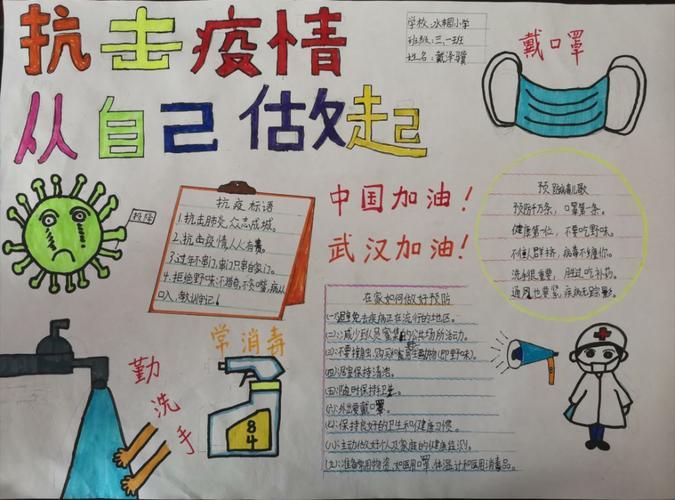 抗击疫情
从自己做起
学校:水帽小学
班级:三、一班
姓名:戴泽骥
戴口罩
投降
抗疫标语
1.抗击肺炎,众志成城。
2.抗击疫情,人人有责。
3.过年不串门,串门只串自家门。
4.拒绝野味,不猎奇,不贪嘴,病从
口入,教训牢记!
中国加油!
武汉加油!
预防病毒儿歌
预防千万条,口罩第一条。
健康第一位,不要吃野味。
不往人群挤,病毒不缠你。
洗手很重要,胜过吃补药。
通风也要紧,疾病无踪影。
在家如何做好预防
(一)避免去疾病正在流行的地区。
(二)减少到人员密集的公共场所活动。
(三)不要接触、购买和食用野生动物(即野味)。
(四)居室保持清洁。
(五)随时保持卫生。
(六)外出要戴口罩。
(七)保持良好的卫生和健康习惯。
(八)主动做好个人及家庭的健康监测。
(九)准备常用物资,如医用口罩、体温计和家用消毒品。
常消毒
84
勤洗手